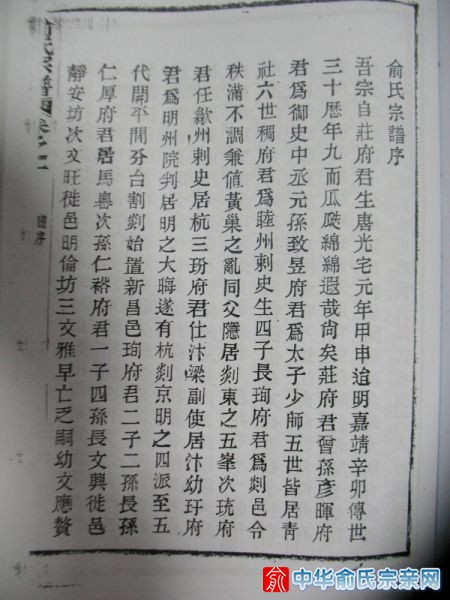 俞氏宗譜序
吾宗自莊府君生唐光宅元年甲申迨明嘉靖辛卯傳世
三十歷年九而瓜瓞綿綿遐哉尚矣莊府君曾孫彥暉府
君爲御史中丞元孫致昱府君爲太子少師五世皆居青
社六世稠府君爲睦州刺史生四子長珣府君爲剡邑令
秩滿不調兼值黃巢之亂同父隱居剡東之五峯次珫府
君任歙州刺史居杭三玢府君仕汴梁副使居汴幼玗府
君爲明州院判居明之大晦遂有杭剡京明之四派至五
代開平間分台割剡始置新昌邑珣府君二子二孫長孫
仁厚府君居馬嶴次孫仁裕府君一子四孫長文興徙邑
靜安坊次文旺徙邑明倫坊三文雅早亡乏嗣幼文應贅
氏宗譜
譜序
中华俞氏宗亲网